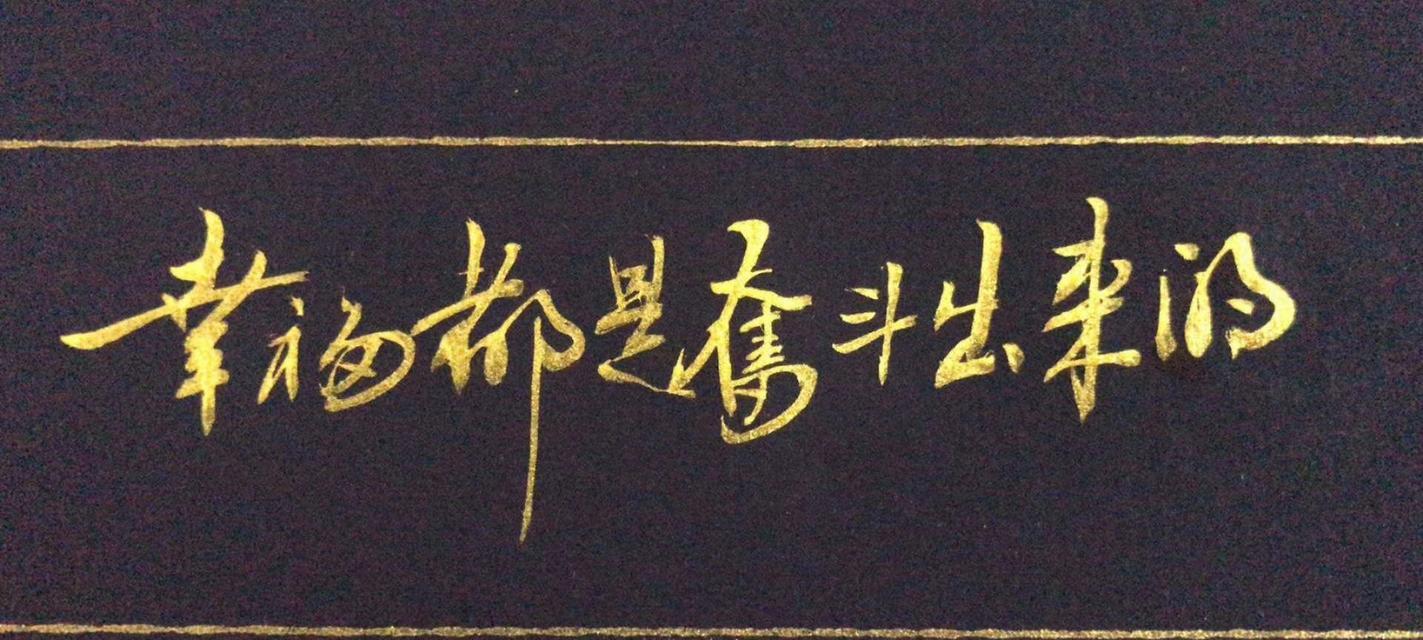 幸福都是奮斗出来的